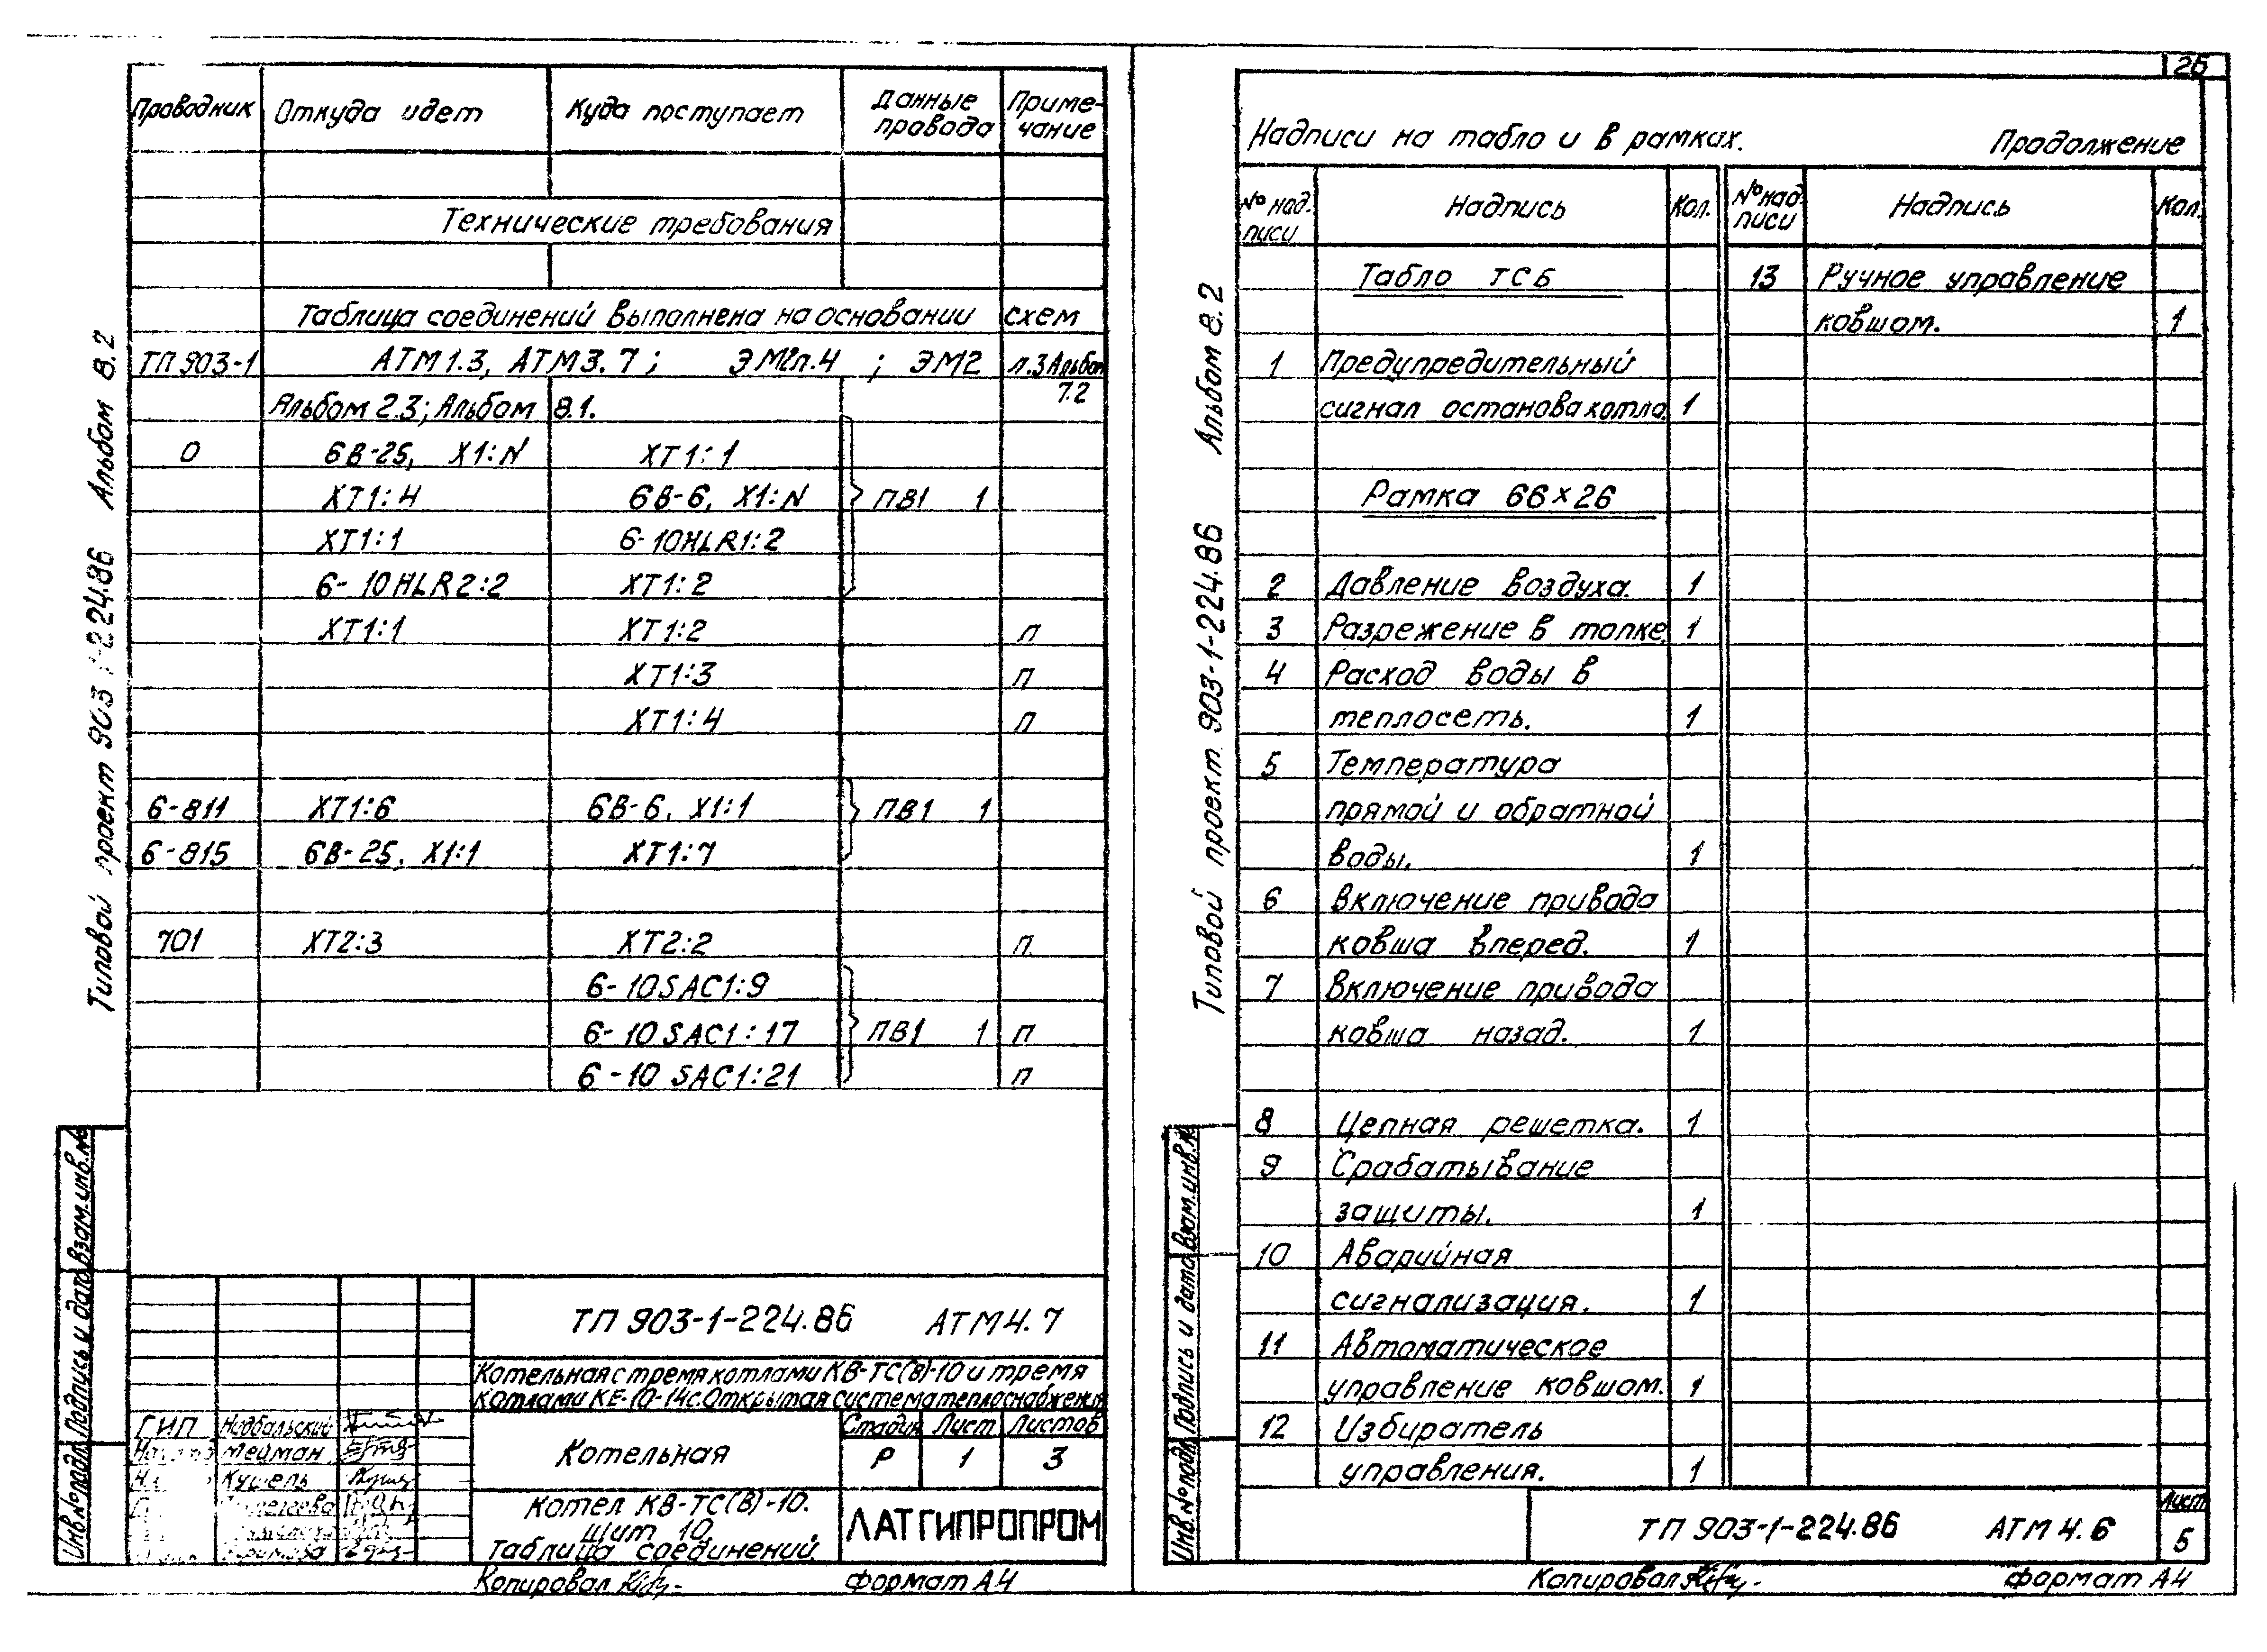 126
Типовой проект 903-1-224.86 Альбом 8.2
Проводник Откуда идет Куда поступает Данные провода Приме-чание
Технические требования
Таблица соединений выполнена на основании схем
ТП 903-1 АТМ1.3, АТМ3.7; ЭМ2л.4 ; ЭМ2 л.3 Альбом 7.2
Альбом 2.3; Альбом 8.1.
0 6В-25, Х1:N ХТ1:1
ХТ1:4 6В-6, Х1:N ПВ1 1
ХТ1:1 6-10HLR1:2
6-10HLR2:2 ХТ1:2
ХТ1:1 ХТ1:2 п
ХТ1:3 п
ХТ1:4 п
6-811 ХТ1:6 6В-6, Х1:1 ПВ1 1
6-815 6В-25, Х1:1 ХТ1:7
701 ХТ2:3 ХТ2:2 п
6-10SAC1:9
6-10SAC1:17 ПВ1 1 п
6-10 SAC1:21 п
Инв.№ подл. Подпись и дата Взам.инв.№
ТП 903-1-224.86 АТМ4.7
Котельная с тремя котлами КВ-ТС(В)-10 и тремя
котлами КЕ-10-14с. Открытая система теплоснабжения
ГИП Надбальский
Мейман
Кушель
Котельная
Стадия Лист Листов
Р 1 3
Котел КВ-ТС(В)-10.
щит 10.
Таблица соединений.
ЛАТГИПРОПРОМ
Копировал Формат А4
Типовой проект 903-1-224.86 Альбом 8.2
Надписи на табло и в рамках. Продолжение
№ над.писи Надпись Кол. № над.писи Надпись Кол.
Табло ТСБ 13 Ручное управление
ковшом. 1
1 Предупредительный
сигнал останова котла. 1
Рамка 66×26
2 Давление воздуха. 1
3 Разрежение в топке. 1
4 Расход воды в
теплосеть. 1
5 Температура
прямой и обратной
воды. 1
6 Включение привода
ковша вперед. 1
7 Включение привода
ковша назад. 1
8 Цепная решетка. 1
9 Срабатывание
защиты. 1
10 Аварийная
сигнализация. 1
11 Автоматическое
управление ковшом. 1
12 Избиратель
управления. 1
Инв.№ подл. Подпись и дата Взам.инв.№
ТП 903-1-224.86 АТМ 4.6
Лист
5
Копировал Формат А4